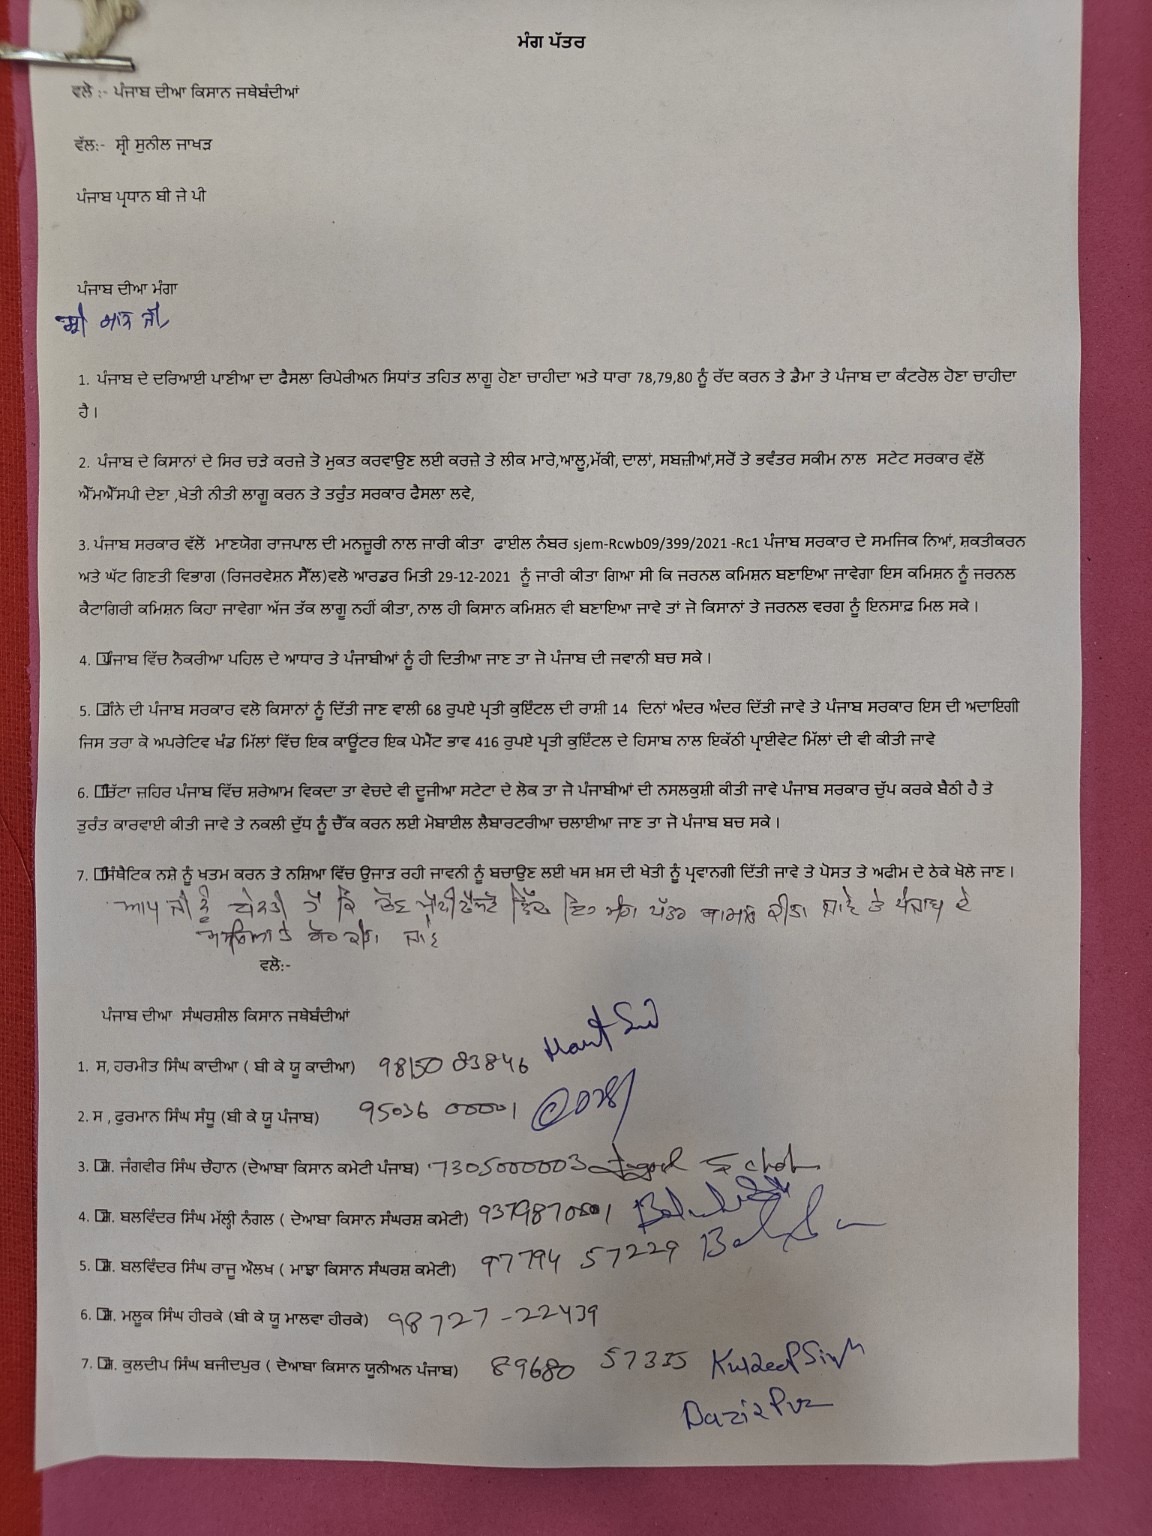 ਮੰਗ ਪੱਤਰ
ਵਲੋ :- ਪੰਜਾਬ ਦੀਆ ਕਿਸਾਨ ਜਥੇਬੰਦੀਆਂ
ਵੱਲ:- ਸ਼੍ਰੀ ਸੁਨੀਲ ਜਾਖੜ
ਪੰਜਾਬ ਪ੍ਰਧਾਨ ਬੀ ਜੇ ਪੀ
ਪੰਜਾਬ ਦੀਆ ਮੰਗਾ
ਸ਼੍ਰੀ ਮਾਨ ਜੀ
1. ਪੰਜਾਬ ਦੇ ਦਰਿਆਈ ਪਾਣੀਆ ਦਾ ਫੈਸਲਾ ਰਿਪੇਰੀਅਨ ਸਿਧਾਂਤ ਤਹਿਤ ਲਾਗੂ ਹੋਣਾ ਚਾਹੀਦਾ ਅਤੇ ਧਾਰਾ 78,79,80 ਨੂੰ ਰੱਦ ਕਰਨ ਤੇ ਡੈਮਾ ਤੇ ਪੰਜਾਬ ਦਾ ਕੰਟਰੋਲ ਹੋਣਾ ਚਾਹੀਦਾ
ਹੈ।
2. ਪੰਜਾਬ ਦੇ ਕਿਸਾਨਾਂ ਦੇ ਸਿਰ ਚੜੇ ਕਰਜ਼ੇ ਤੋ ਮੁਕਤ ਕਰਵਾਉਣ ਲਈ ਕਰਜ਼ੇ ਤੇ ਲੀਕ ਮਾਰੇ,ਆਲੂ,ਮੱਕੀ, ਦਾਲਾਂ, ਸਬਜ਼ੀਆਂ,ਸਰੋਂ ਤੇ ਭਵੰਤਰ ਸਕੀਮ ਨਾਲ ਸਟੇਟ ਸਰਕਾਰ ਵੱਲੋਂ
ਐੱਮਐੱਸਪੀ ਦੇਣਾ ,ਖੇਤੀ ਨੀਤੀ ਲਾਗੂ ਕਰਨ ਤੇ ਤਰੁੰਤ ਸਰਕਾਰ ਫੈਸਲਾ ਲਵੇ,
3. ਪੰਜਾਬ ਸਰਕਾਰ ਵੱਲੋਂ ਮਾਣਯੋਗ ਰਾਜਪਾਲ ਦੀ ਮਨਜ਼ੂਰੀ ਨਾਲ ਜਾਰੀ ਕੀਤਾ ਫਾਈਲ ਨੰਬਰ sjem-Rcwb09/399/2021 -Rc1 ਪੰਜਾਬ ਸਰਕਾਰ ਦੇ ਸਮਜਿਕ ਨਿਆਂ, ਸ਼ਕਤੀਕਰਨ
ਅਤੇ ਘੱਟ ਗਿਣਤੀ ਵਿਭਾਗ (ਰਿਜਰਵੇਸ਼ਨ ਸੈੱਲ)ਵਲੋ ਆਰਡਰ ਮਿਤੀ 29-12-2021 ਨੂੰ ਜਾਰੀ ਕੀਤਾ ਗਿਆ ਸੀ ਕਿ ਜਰਨਲ ਕਮਿਸ਼ਨ ਬਣਾਇਆ ਜਾਵੇਗਾ ਇਸ ਕਮਿਸ਼ਨ ਨੂੰ ਜਰਨਲ
ਕੈਟਾਗਿਰੀ ਕਮਿਸ਼ਨ ਕਿਹਾ ਜਾਵੇਗਾ ਅੱਜ ਤੱਕ ਲਾਗੂ ਨਹੀਂ ਕੀਤਾ, ਨਾਲ ਹੀ ਕਿਸਾਨ ਕਮਿਸ਼ਨ ਵੀ ਬਣਾਇਆ ਜਾਵੇ ਤਾਂ ਜੋ ਕਿਸਾਨਾਂ ਤੇ ਜਰਨਲ ਵਰਗ ਨੂੰ ਇਨਸਾਫ਼ ਮਿਲ ਸਕੇ।
4. ਪੰਜਾਬ ਵਿੱਚ ਨੌਕਰੀਆ ਪਹਿਲ ਦੇ ਆਧਾਰ ਤੇ ਪੰਜਾਬੀਆਂ ਨੂੰ ਹੀ ਦਿਤੀਆ ਜਾਣ ਤਾ ਜੋ ਪੰਜਾਬ ਦੀ ਜਵਾਨੀ ਬਚ ਸਕੇ।
5. ਗੰਨੇ ਦੀ ਪੰਜਾਬ ਸਰਕਾਰ ਵਲੋ ਕਿਸਾਨਾਂ ਨੂੰ ਦਿੱਤੀ ਜਾਣ ਵਾਲੀ 68 ਰੁਪਏ ਪ੍ਰਤੀ ਕੁਇੰਟਲ ਦੀ ਰਾਸ਼ੀ 14 ਦਿਨਾਂ ਅੰਦਰ ਅੰਦਰ ਦਿੱਤੀ ਜਾਵੇ ਤੇ ਪੰਜਾਬ ਸਰਕਾਰ ਇਸ ਦੀ ਅਦਾਇਗੀ
ਜਿਸ ਤਰਾ ਕੋ ਅਪਰੇਟਿਵ ਖੰਡ ਮਿੱਲਾਂ ਵਿੱਚ ਇਕ ਕਾਊਂਟਰ ਇਕ ਪੇਮੈਂਟ ਭਾਵ 416 ਰੁਪਏ ਪ੍ਰਤੀ ਕੁਇੰਟਲ ਦੇ ਹਿਸਾਬ ਨਾਲ ਇਕੱਠੀ ਪ੍ਰਾਈਵੇਟ ਮਿੱਲਾਂ ਦੀ ਵੀ ਕੀਤੀ ਜਾਵੇ
6. ਚਿੱਟਾ ਜ਼ਹਿਰ ਪੰਜਾਬ ਵਿੱਚ ਸ਼ਰੇਆਮ ਵਿਕਦਾ ਤਾ ਵੇਚਦੇ ਵੀ ਦੂਜੀਆ ਸਟੇਟਾ ਦੇ ਲੋਕ ਤਾ ਜੋ ਪੰਜਾਬੀਆਂ ਦੀ ਨਸਲਕੁਸ਼ੀ ਕੀਤੀ ਜਾਵੇ ਪੰਜਾਬ ਸਰਕਾਰ ਚੁੱਪ ਕਰਕੇ ਬੈਠੀ ਹੈ ਤੇ
ਤੁਰੰਤ ਕਾਰਵਾਈ ਕੀਤੀ ਜਾਵੇ ਤੇ ਨਕਲੀ ਦੁੱਧ ਨੂੰ ਚੈੱਕ ਕਰਨ ਲਈ ਮੋਬਾਈਲ ਲੈਬਾਰਟਰੀਆ ਚਲਾਈਆ ਜਾਣ ਤਾ ਜੋ ਪੰਜਾਬ ਬਚ ਸਕੇ।
7. ਸਿੰਥੈਟਿਕ ਨਸ਼ੇ ਨੂੰ ਖਤਮ ਕਰਨ ਤੇ ਨਸ਼ਿਆ ਵਿੱਚ ਉਜਾੜ ਰਹੀ ਜਾਵਨੀ ਨੂੰ ਬਚਾਉਣ ਲਈ ਖਸ ਖ਼ਸ ਦੀ ਖੇਤੀ ਨੂੰ ਪ੍ਰਵਾਨਗੀ ਦਿੱਤੀ ਜਾਵੇ ਤੇ ਪੋਸਤ ਤੇ ਅਫੀਮ ਦੇ ਠੇਕੇ ਖੋਲੇ ਜਾਣ।
ਆਪ ਜੀ ਨੂੰ ਬੇਨਤੀ ਹੈ ਕਿ ਚੋਣ ਮੈਨੀਫੈਸਟੋ ਵਿੱਚ ਇਹ ਮੰਗ ਪੱਤਰ ਸ਼ਾਮਲ ਕੀਤਾ ਜਾਵੇ ਤੇ ਪੰਜਾਬ ਦੇ
ਜਾਵੇ
ਵਲੋ:-
ਪੰਜਾਬ ਦੀਆ ਸੰਘਰਸ਼ੀਲ ਕਿਸਾਨ ਜਥੇਬੰਦੀਆਂ
1. ਸ, ਹਰਮੀਤ ਸਿੰਘ ਕਾਦੀਆ ( ਬੀ ਕੇ ਯੂ ਕਾਦੀਆ) 98150 83846
2. ਸ , ਫੁਰਮਾਨ ਸਿੰਘ ਸੰਧੂ (ਬੀ ਕੇ ਯੂ ਪੰਜਾਬ) 95036 00001
3. ਸ. ਜੰਗਵੀਰ ਸਿੰਘ ਚੌਹਾਨ (ਦੋਆਬਾ ਕਿਸਾਨ ਕਮੇਟੀ ਪੰਜਾਬ) 7305000003
4. ਸ. ਬਲਵਿੰਦਰ ਸਿੰਘ ਮੱਲ੍ਹੀ ਨੰਗਲ ( ਦੋਆਬਾ ਕਿਸਾਨ ਸੰਘਰਸ਼ ਕਮੇਟੀ)
5. ਸ. ਬਲਵਿੰਦਰ ਸਿੰਘ ਰਾਜੂ ਔਲਖ ( ਮਾਝਾ ਕਿਸਾਨ ਸੰਘਰਸ਼ ਕਮੇਟੀ) 97794 57229
6. ਸ. ਮਲੂਕ ਸਿੰਘ ਹੀਰਕੇ (ਬੀ ਕੇ ਯੂ ਮਾਲਵਾ ਹੀਰਕੇ) 98727-22439
7. ਸ. ਕੁਲਦੀਪ ਸਿੰਘ ਬਜੀਦਪੁਰ ( ਦੋਆਬਾ ਕਿਸਾਨ ਯੂਨੀਅਨ ਪੰਜਾਬ) 89680 57335 Kuldeep Singh